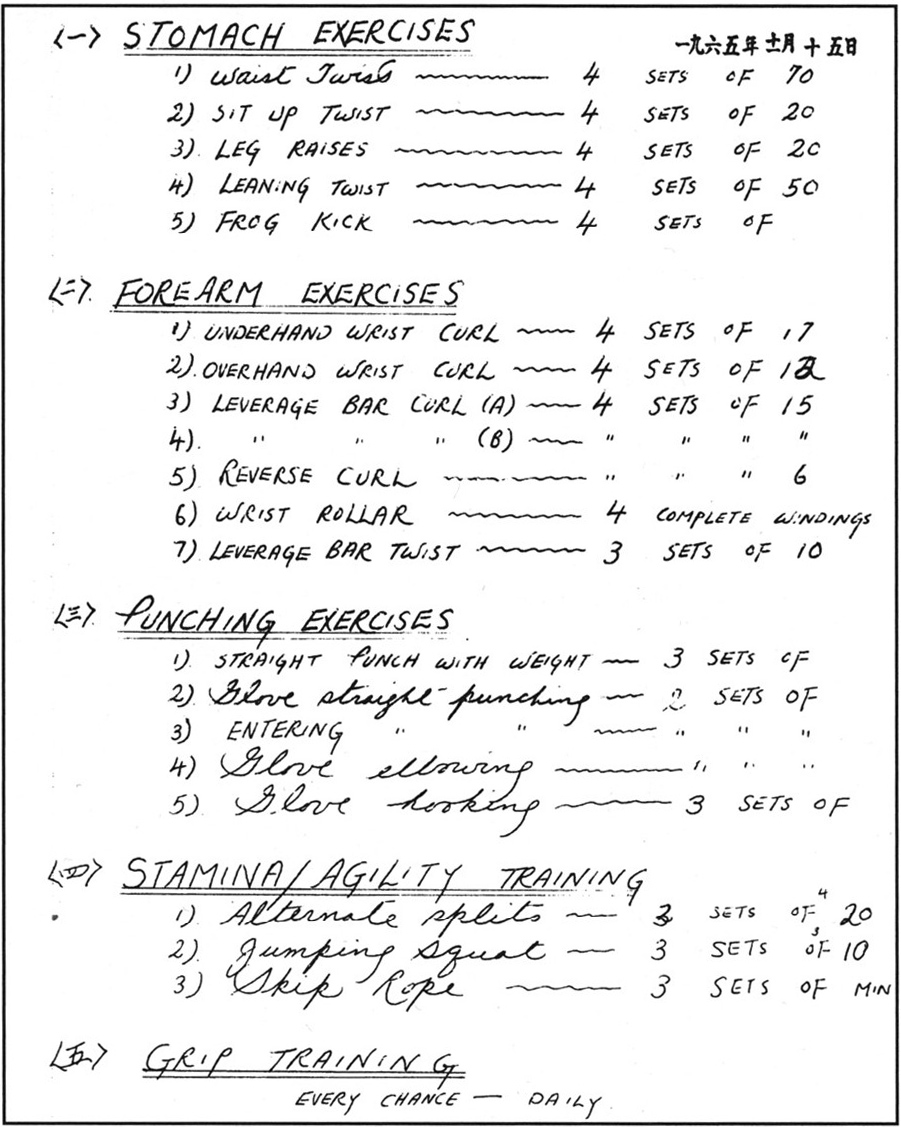 〈一〉 STOMACH EXERCISES 一九六五年 十一月 十五日
1) Waist Twist 4 SETS OF 70
2) SIT UP TWIST 4 SETS OF 20
3) LEG RAISES 4 SETS OF 20
4) LEANING TWIST 4 SETS OF 50
5) FROG KICK 4 SETS OF
〈二〉 FOREARM EXERCISES
1) UNDERHAND WRIST CURL 4 SETS OF 17
2) OVERHAND WRIST CURL 4 SETS OF 12
3) LEVERAGE BAR CURL (A) 4 SETS OF 15
4) " " " (B) " " " "
5) REVERSE CURL " " " 6
6) WRIST ROLLAR 4 COMPLETE WINDINGS
7) LEVERAGE BAR TWIST 3 SETS OF 10
〈三〉 PUNCHING EXERCISES
1) STRAIGHT PUNCH WITH WEIGHT 3 SETS OF
2) Glove straight punching 2 SETS OF
3) ENTERING " " " " "
4) Glove elbowing " " "
5) Glove hooking 3 SETS OF
〈四〉 STAMINA/AGILITY TRAINING
1) Alternate splits 3 SETS OF 4 20
2) Jumping Squat 3 SETS OF 3 10
3) Skip Rope 3 SETS OF MIN
〈五〉 GRIP TRAINING
EVERY CHANCE — DAILY